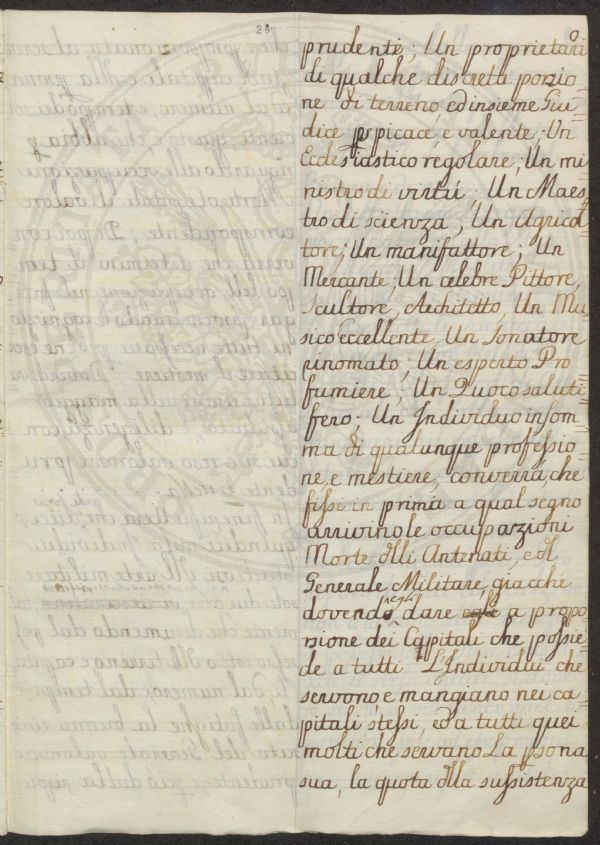 28
prudente; Un proprietari
di qualche discreta porzio=
ne di terreno ed insieme Giu=
dice pspicace e valente; Un
Ecclesiastico regolare; Un mi=
nistro di virtú; Un Maes=
tro di scienza; Un Agricol=
tore; Un manifattore; Un
Mercante; Un celebre Pittore,
Scultore, Architetto, Un Mu=
sico eccellente, Un Sonatore
rinomato; Un esperto Pro=
fumiere; Un Quoco saluti=
fero; Un Individuo insom=
ma di qualunque professio=
ne, e mestiere, converrá, che
fissi in prima a qual segno
arrivino le occupazioni
Morte dlli Antenati, e dl
Generale Militare, giacché
dovendo egli dare a propo=
rzione dei Capitali che possie=
de a tutti L'Individui che
servono, e mangiano nei ca=
pitali stessi, ed a tutti quei
molti che servano La psona
sua, la quota dlla sussistenza